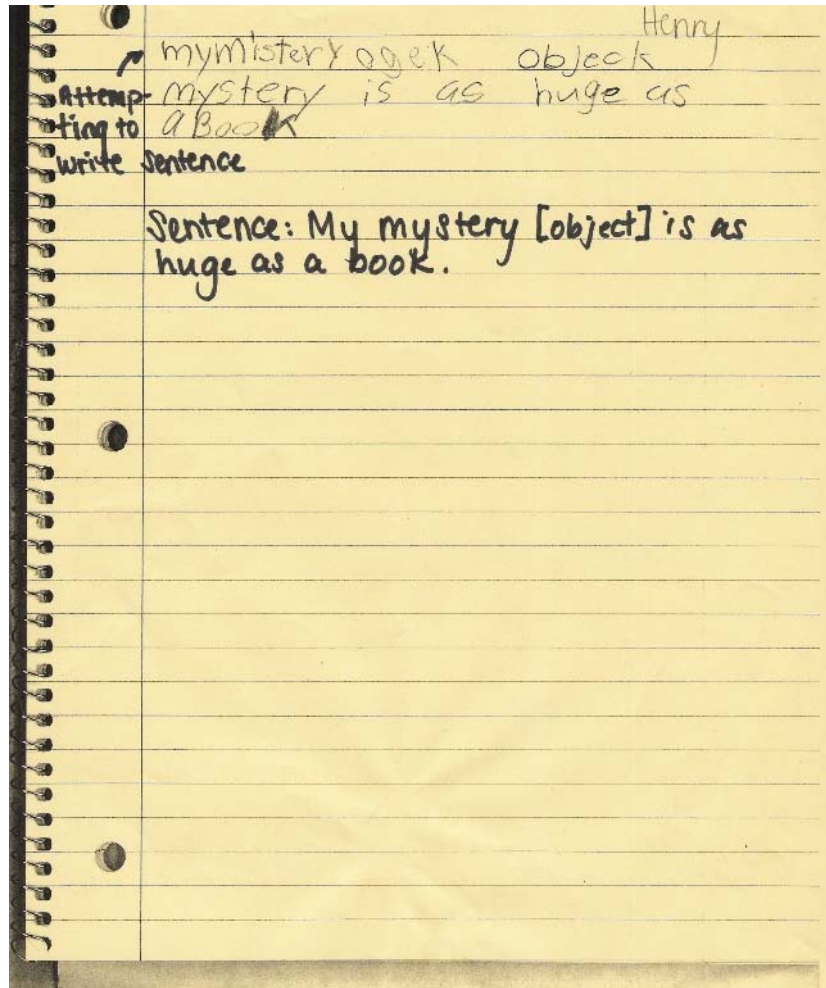 Henry
mymistery ogek objeck
Attemp- mystery is as huge as
ting to a Book
write sentence
Sentence: My mystery [object] is as
huge as a book.